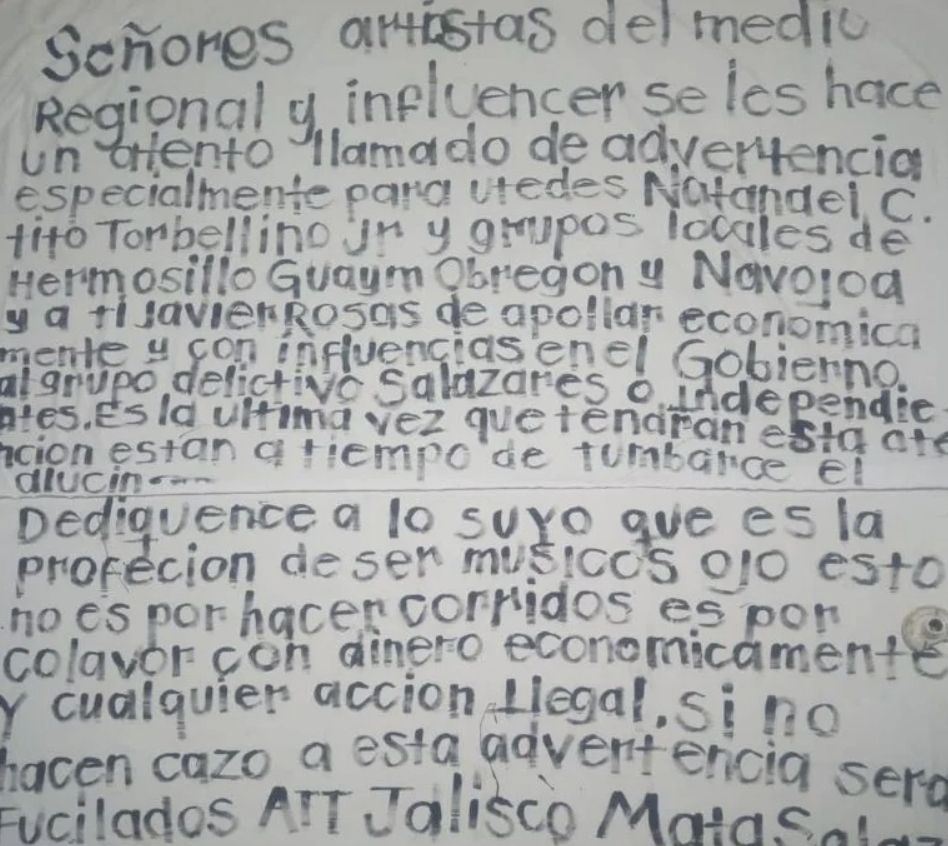 Señores artistas del medio
Regional y influencer se les hace
un atento llamado de advertencia
especialmente para utedes Natandel C.
tito Torbellino Jr y grupos locales de
Hermosillo Guaym Obregon y Navojoa
y a ti Javier Rosas de apollar economica
mente y con influencias en el Gobierno.
al grupo delictivo Salazares o independie
ntes. Es la ultima vez que tendran esta ate
ncion estan a tiempo de tumbarce el
alucin
Dediquence a lo suyo que es la
profecion de ser musicos ojo esto
no es por hacer corridos es por
colavor con dinero economicamente
y cualquier accion Ilegal. si no
hacen cazo a esta advertencia sera
Fucilados ATT Jalisco Mata